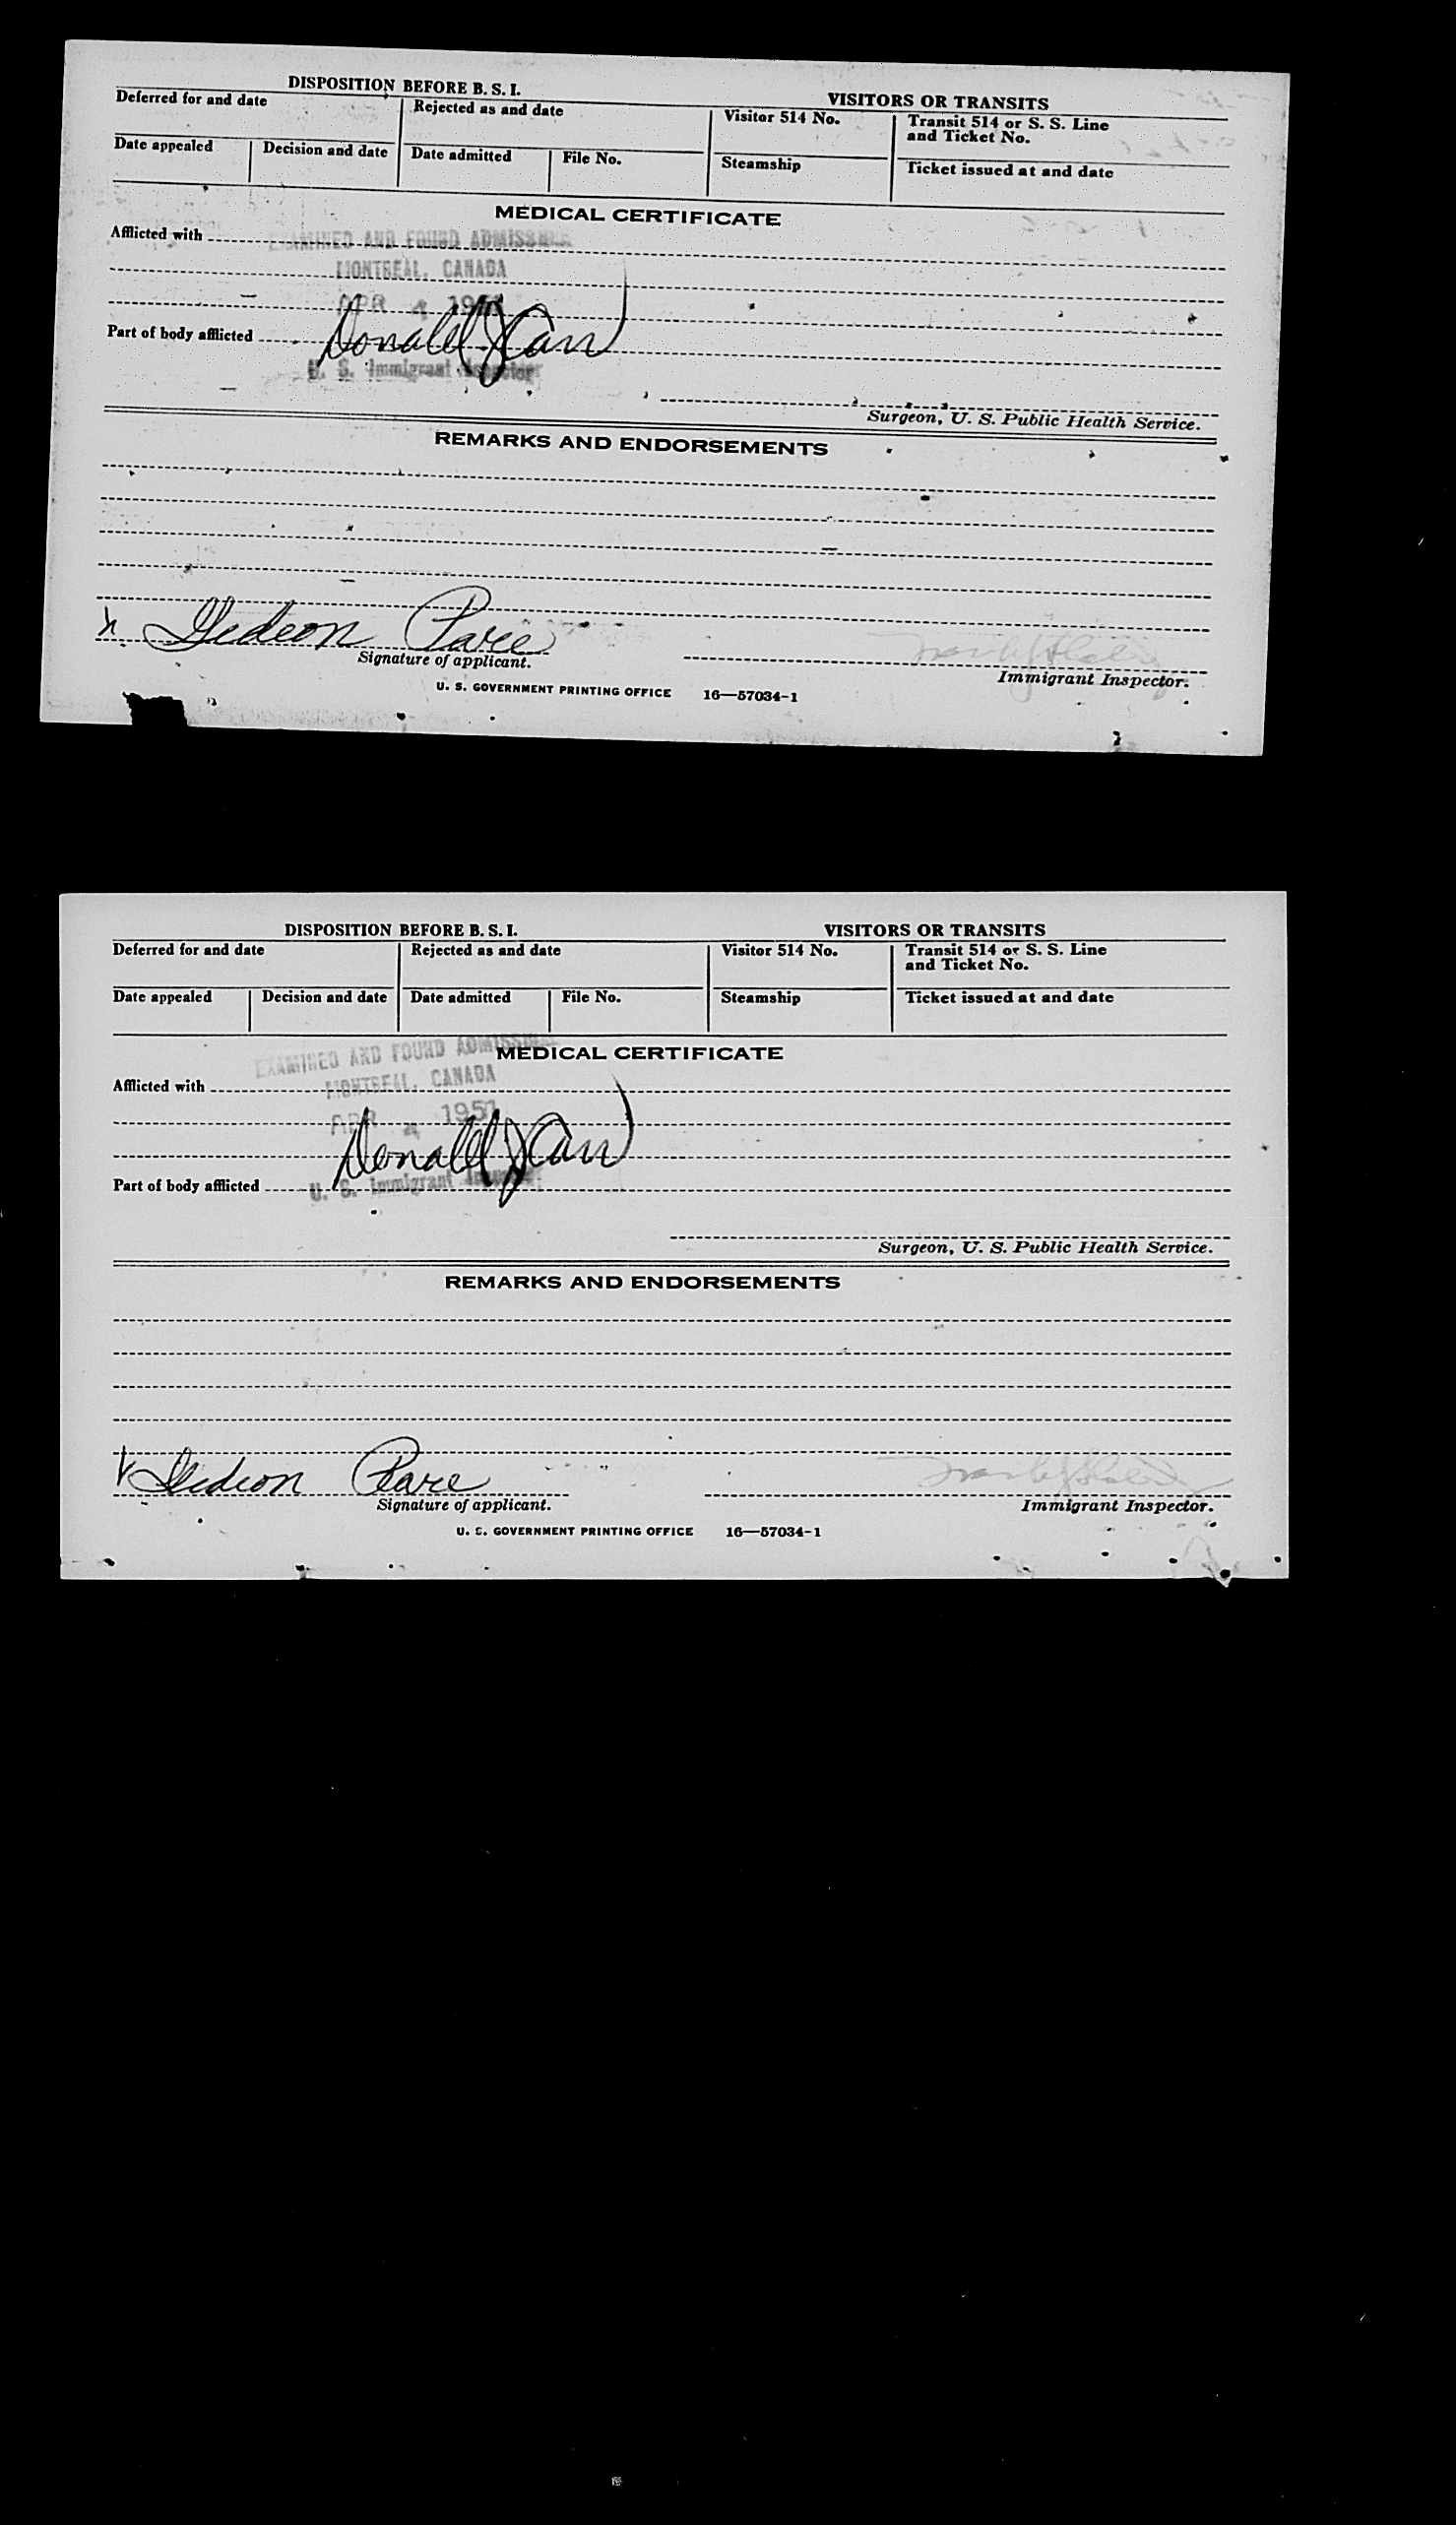 DISPOSITION BEFORE B. S. I.
VISITORS OR TRANSITS
Deferred for and date
Rejected as and date
Visitor 514 No.
Transit 514 or S. S. Line
and Ticket No.
Date appealed
Decision and date
Date admitted
File No.
Steamship
Ticket issued at and date
MEDICAL CERTIFICATE
Afflicted with
EXAMINED AND FOUND ADMISSIBLE
MONTREAL, CANADA
APR 4
Donald J Carr
Part of body afflicted
U. S. Immigrant Inspector
Surgeon, U. S. Public Health Service.
REMARKS AND ENDORSEMENTS
Gedeon Pare
Signature of applicant.
Immigrant Inspector.
U. S. GOVERNMENT PRINTING OFFICE 16—57034-1
DISPOSITION BEFORE B. S. I.
VISITORS OR TRANSITS
Deferred for and date
Rejected as and date
Visitor 514 No.
Transit 514 or S. S. Line
and Ticket No.
Date appealed
Decision and date
Date admitted
File No.
Steamship
Ticket issued at and date
EXAMINED AND FOUND ADMISSIBLE
MEDICAL CERTIFICATE
Afflicted with
MONTREAL, CANADA
APR 4 1957
Donald J Carr
Part of body afflicted
U. S. Immigrant Inspector
Surgeon, U. S. Public Health Service.
REMARKS AND ENDORSEMENTS
Gedeon Pare
Signature of applicant.
Immigrant Inspector.
U. S. GOVERNMENT PRINTING OFFICE 16—57034-1